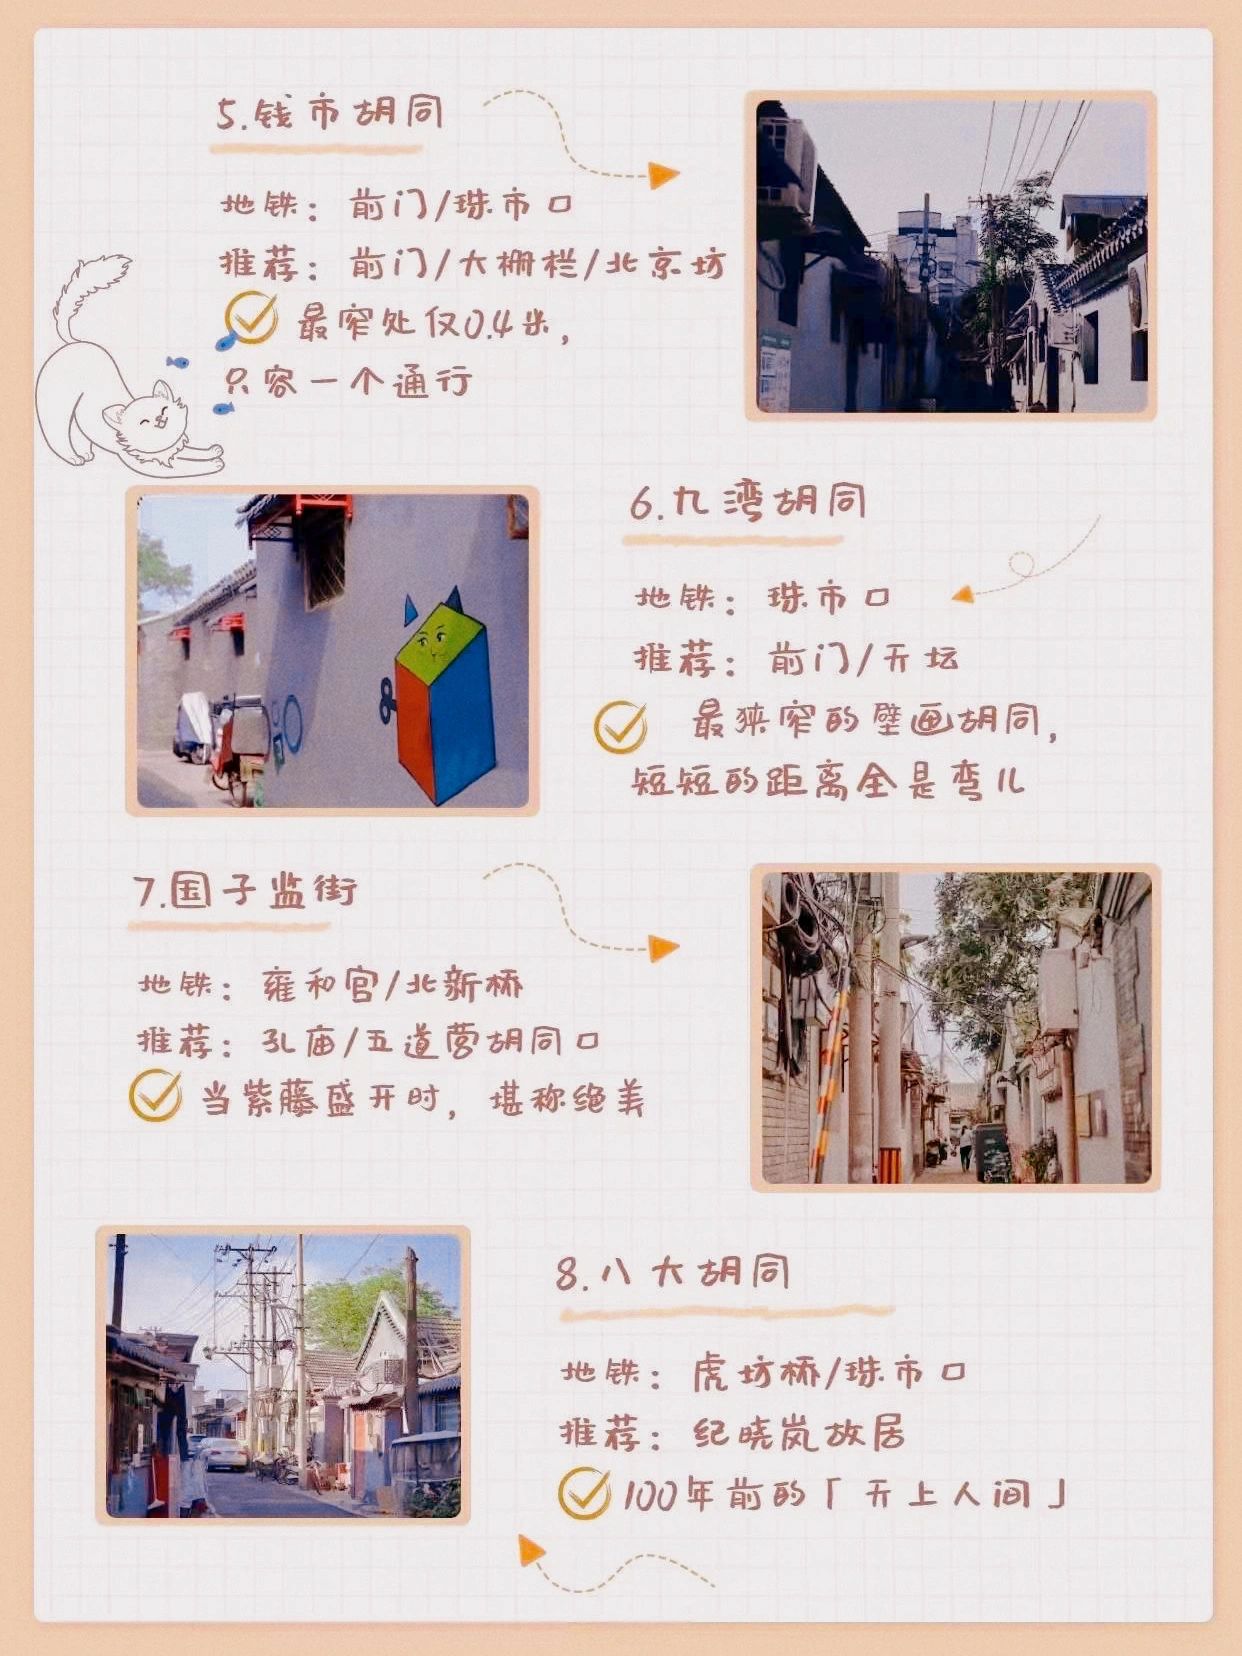 5.钱市胡同
地铁：前门/珠市口
推荐：前门/大栅栏/北京坊
最窄处仅0.4米，
只容一个通行
6.九湾胡同
地铁：珠市口
推荐：前门/天坛
最狭窄的壁画胡同，
短短的距离全是弯儿
7.国子监街
地铁：雍和宫/北新桥
推荐：孔庙/五道营胡同口
当紫藤盛开时，堪称绝美
8.八大胡同
地铁：虎坊桥/珠市口
推荐：纪晓岚故居
100年前的「天上人间」